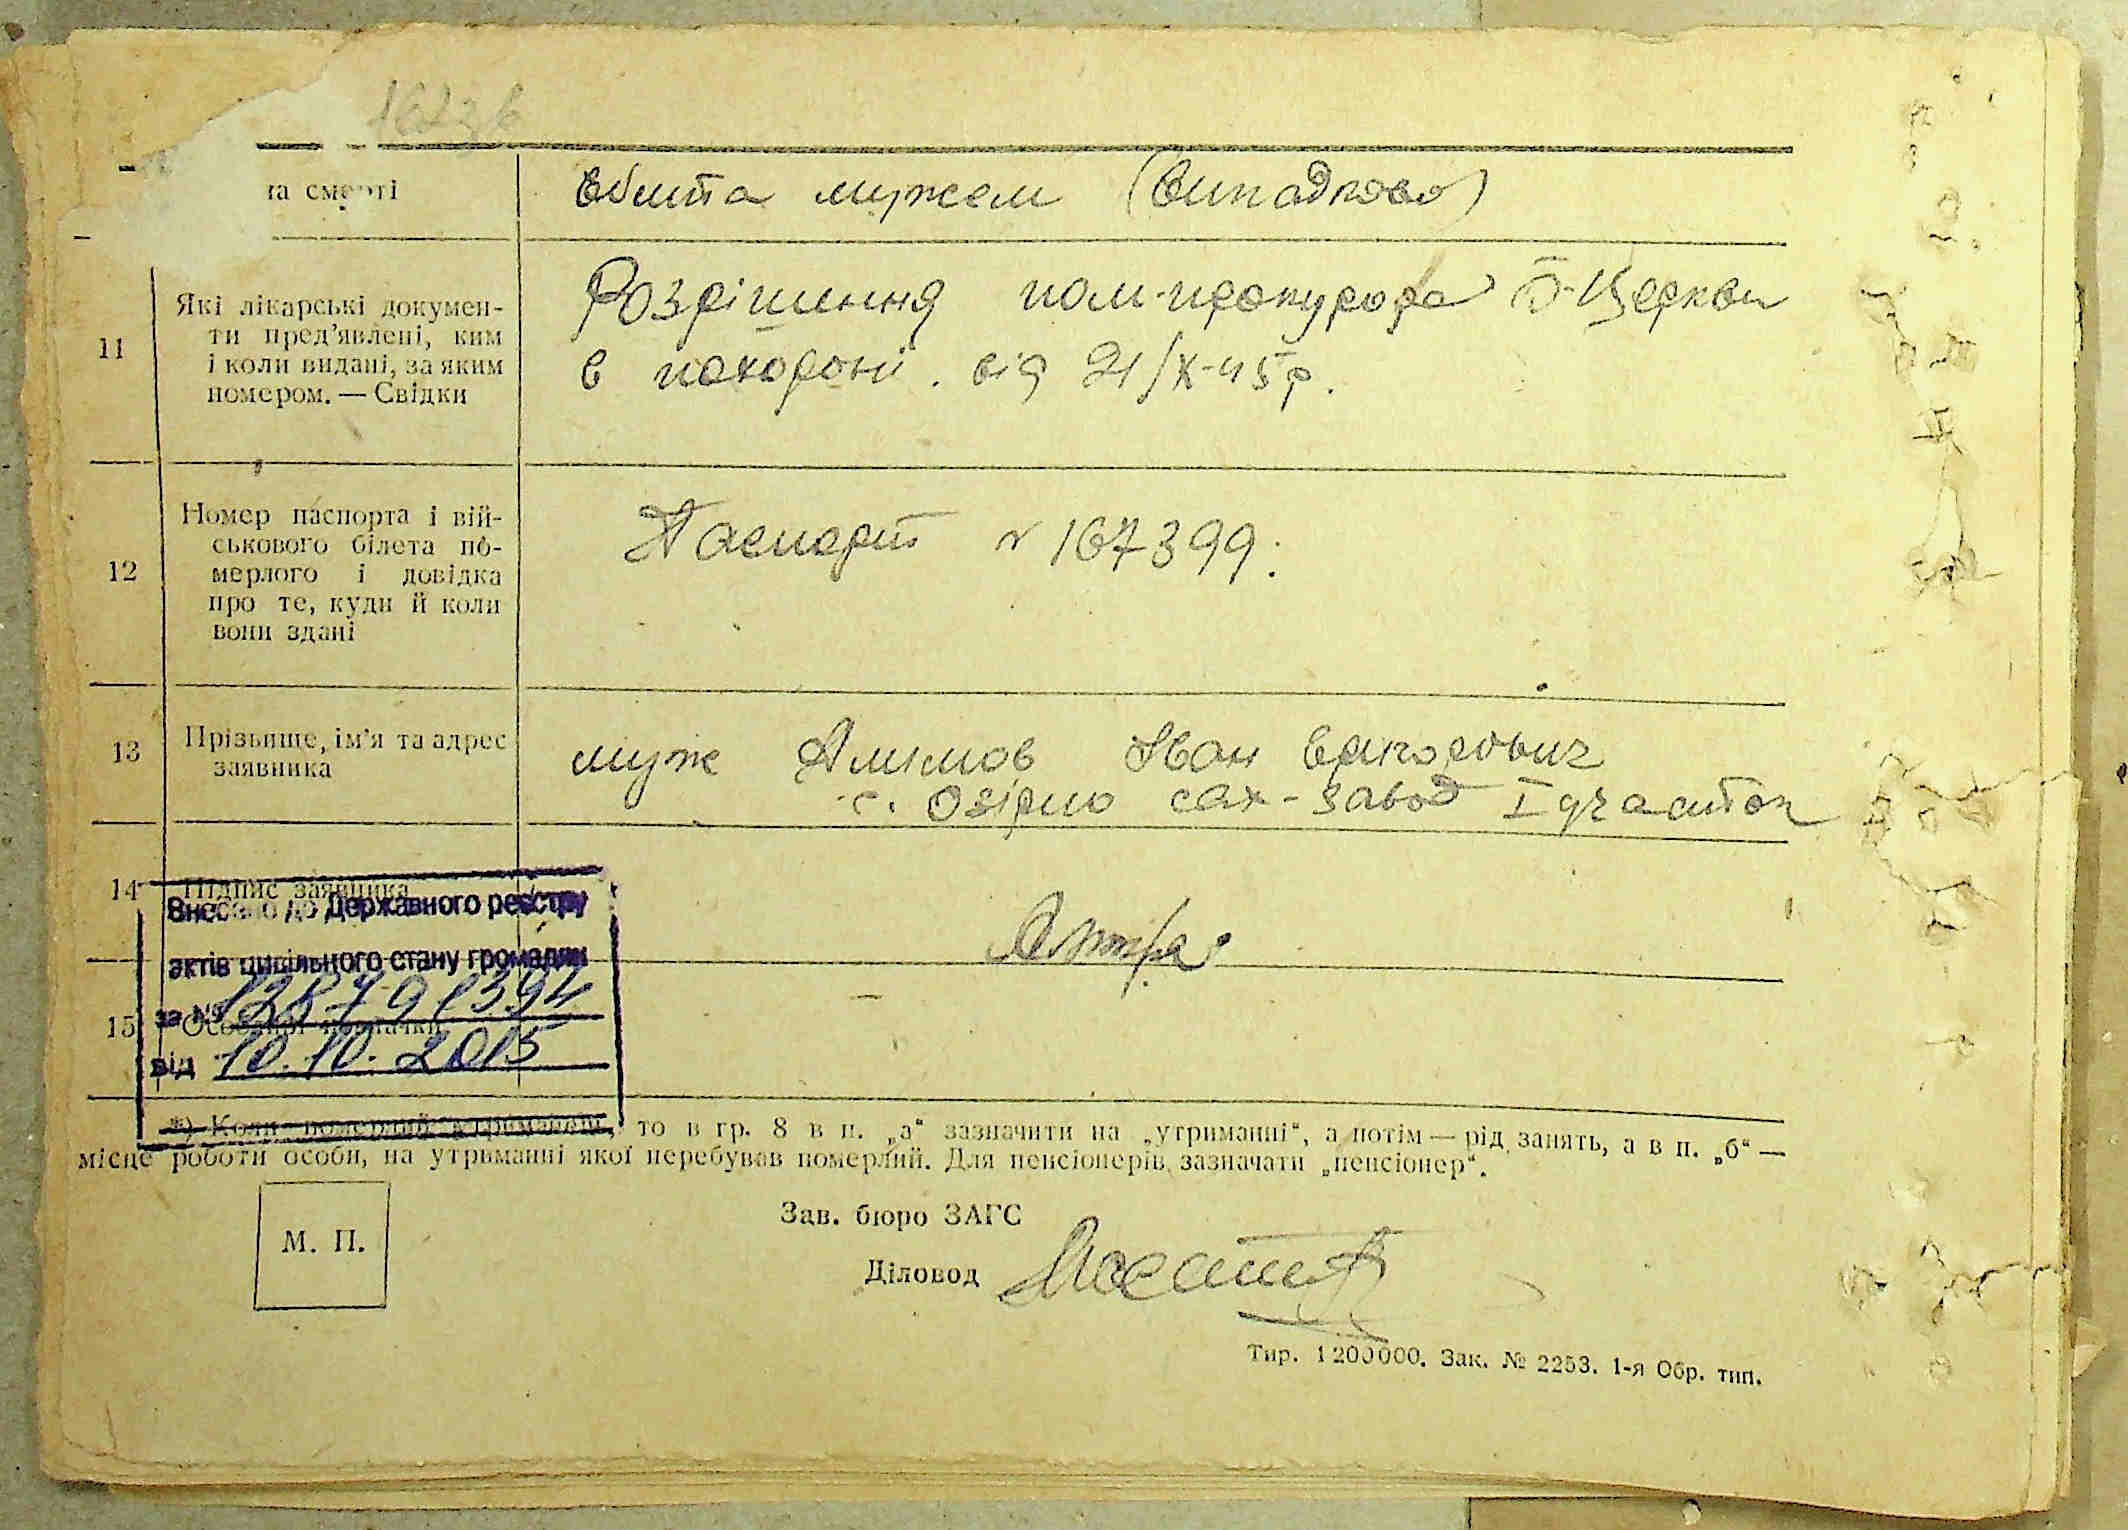 1623 б
на смерті
вбита мужем (випадково)
11
Які лікарські докумен-
ти пред'явлені, ким
і коли видані, за яким
номером. — Свідки
Розрішення пом-прокурора Б-Церкви
в похороні. від 21/X-45 р.
12
Номер паспорта і вій-
ськового білета по-
мерлого і довідка
про те, куди й коли
вони здані
Паспорт № 167399.
13
Прізвище, ім'я та адрес
заявника
муж Алимов Іван
с. Озірно сах-завод I участок
14
Підпис заявника
15
Особливі
Внесено до Державного реєстру
актів цивільного стану громадян
за № 12879 1394
від 10.10.2015
*) Коли померлий утриманець, то в гр. 8 в п. „а“ зазначити на „утриманні“, а потім — рід занять, а в п. „б“ —
місце роботи особи, на утриманні якої перебував померлий. Для пенсіонерів зазначати „пенсіонер“.
М. П.
Зав. бюро ЗАГС
Діловод
Тир. 1200000. Зак. № 2253. 1-я Обр. тип.